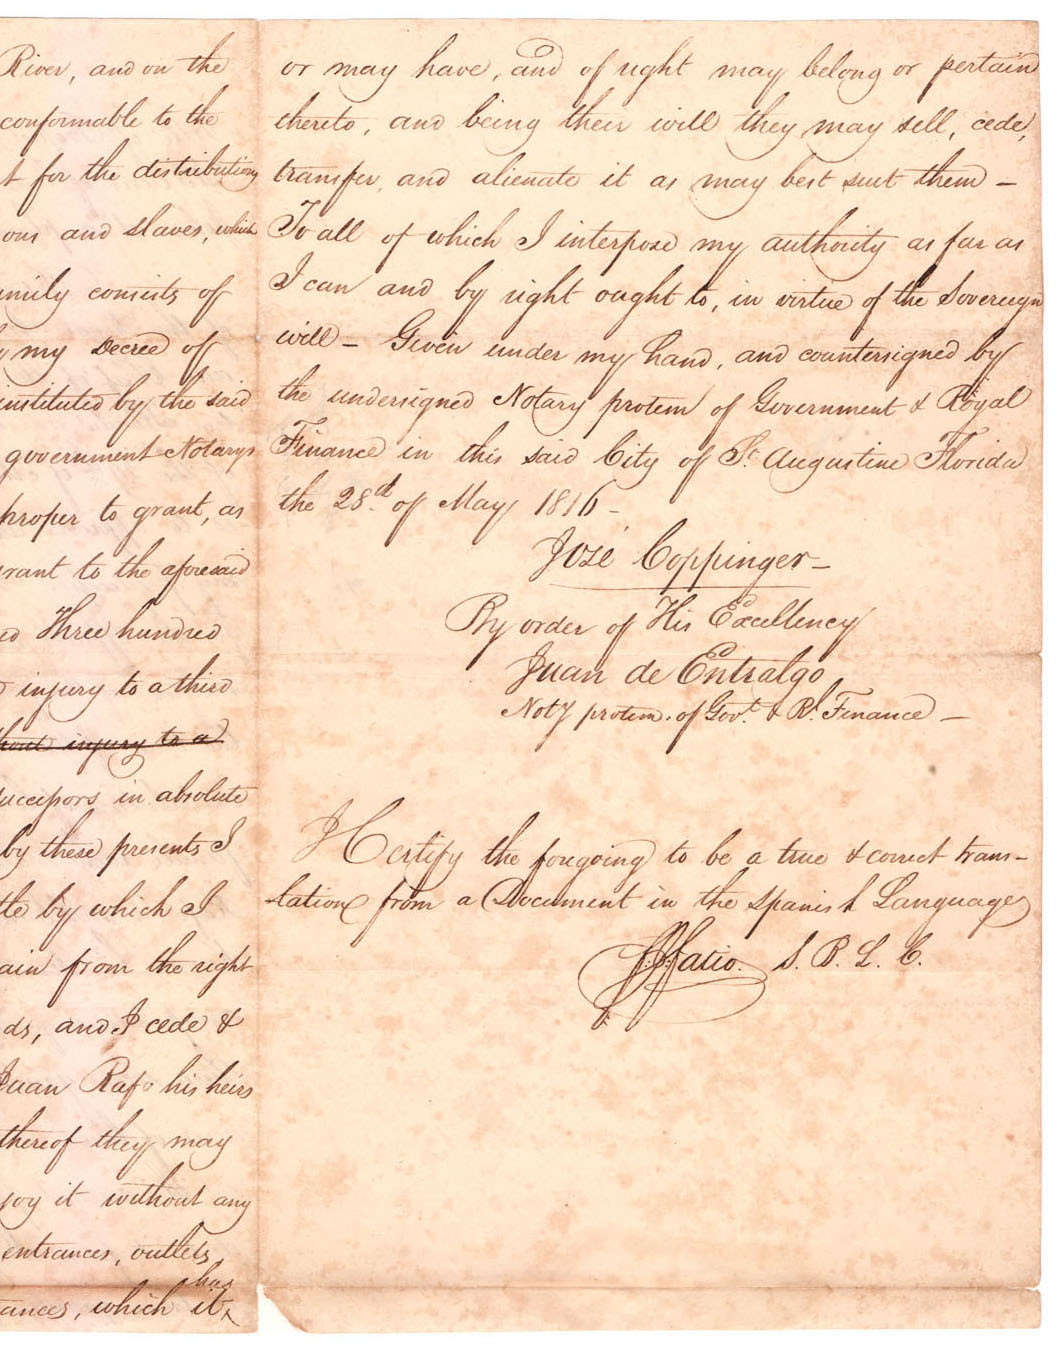 River, and on the
conformable to the
t for the distribution
ons and slaves, which
amily consists of
my Decree of
instituted by the said
government Notarys
proper to grant, as
grant to the aforesaid
ed Three hundred
injury to a third
hout injury to a
successors in absolute
by these presents I
tle by which I
ain from the right
ds, and I cede &
Juan Rafo his heirs
thereof they may
joy it without any
entrances, outlets,
has
ances, which it
or may have, and of right may belong or pertain
thereto, and being their will they may sell, cede,
transfer, and alienate it as may best suit them –
To all of which I interpose my authority as far as
I can and by right ought to, in virtue of the Sovereign
will – Given under my hand, and countersigned by
the undersigned Notary protem of Government & Royal
Finance in this said City of St Augustine Florida
the 28.d of May 1816 –
José Coppinger –
By order of His Excellency
Juan de Entralgo
Noty protem. of Govt. & Rl. Finance –
I Certify the foregoing to be a true & correct trans-
lation from a Document in the Spanish Language
Fatio. S. B. L. C.